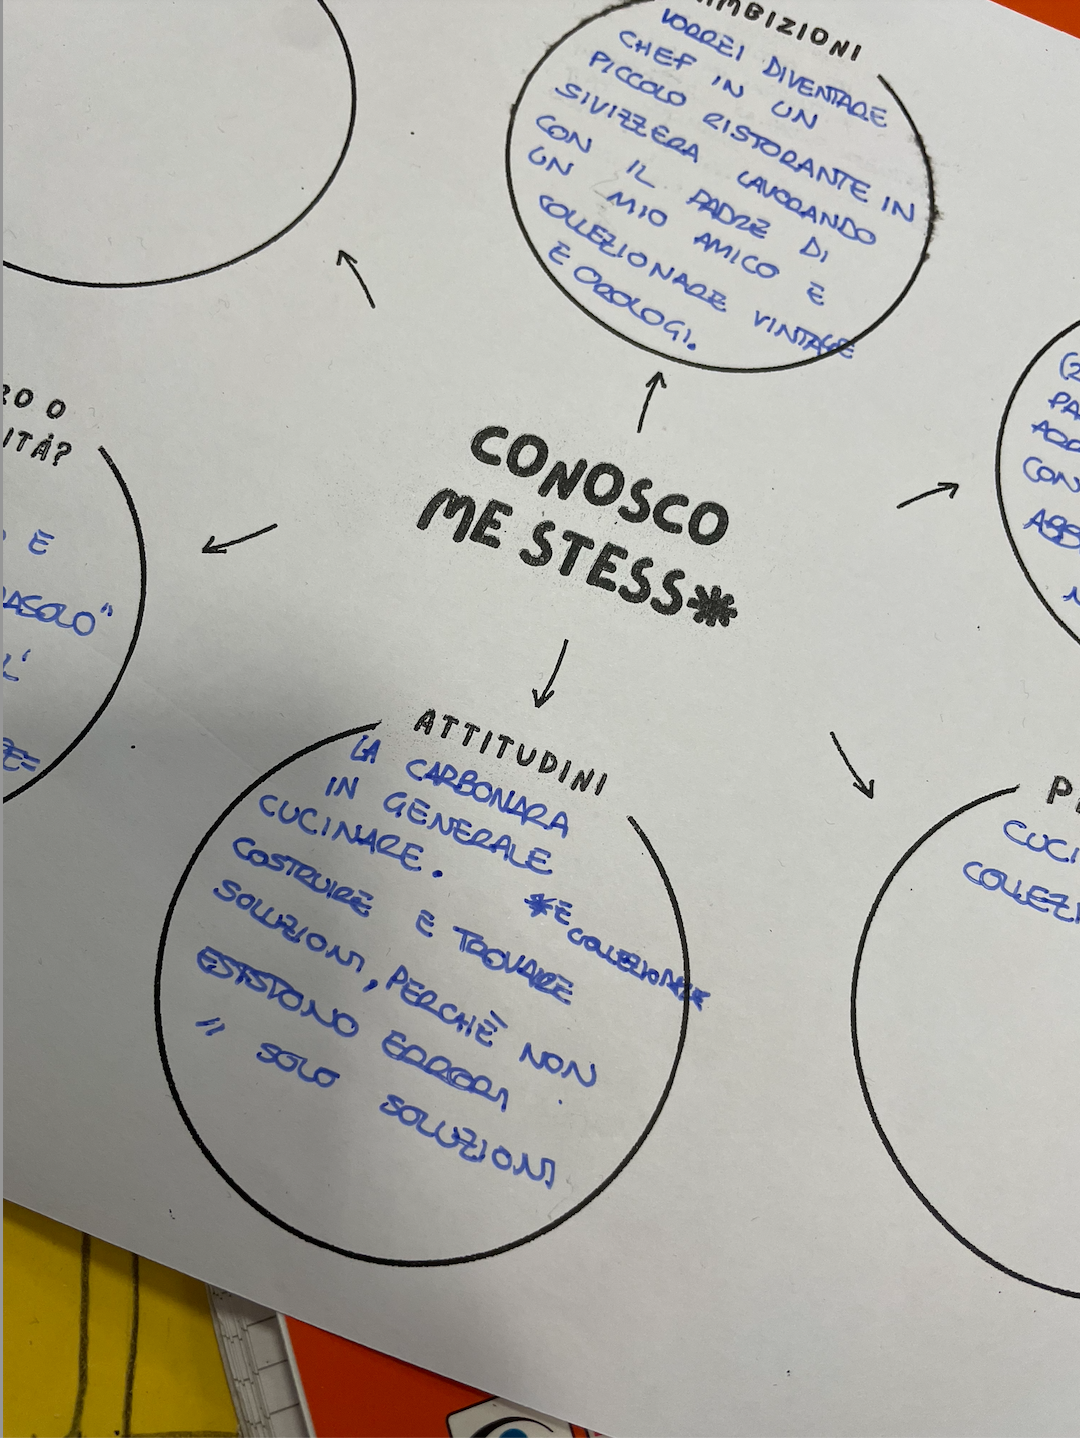 AMBIZIONI
VORREI DIVENTARE
CHEF IN UN
PICCOLO RISTORANTE IN
SIVIZZERA LAVORANDO
CON IL PADRE DI
UN MIO AMICO E
COLLEZIONARE VINTAGE
E OROLOGI.
CONOSCO
ME STESS*
RO O
ITÁ?
E
RASOLO"
L'
ATTITUDINI
LA CARBONARA
IN GENERALE
CUCINARE.
*E
COLLEZIONARE
COSTRUIRE E TROVARE
SOLUZIONI, PERCHÈ NON
ESISTONO ERRORI
" SOLO SOLUZIONI
(2
PA
CON
P
CUCI
COLLEZI